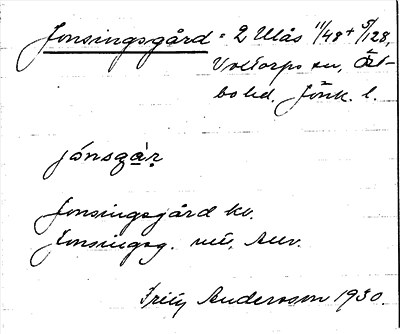 Jonsingsgård = 2 Ulås 11/48 + 5/128,
Voxtorps sn, Öst-
bo hd. Jönk. l.
jónsgàr
Jonsingsgård kv.
Jonsingsg.
Fritz Andersson 1930.